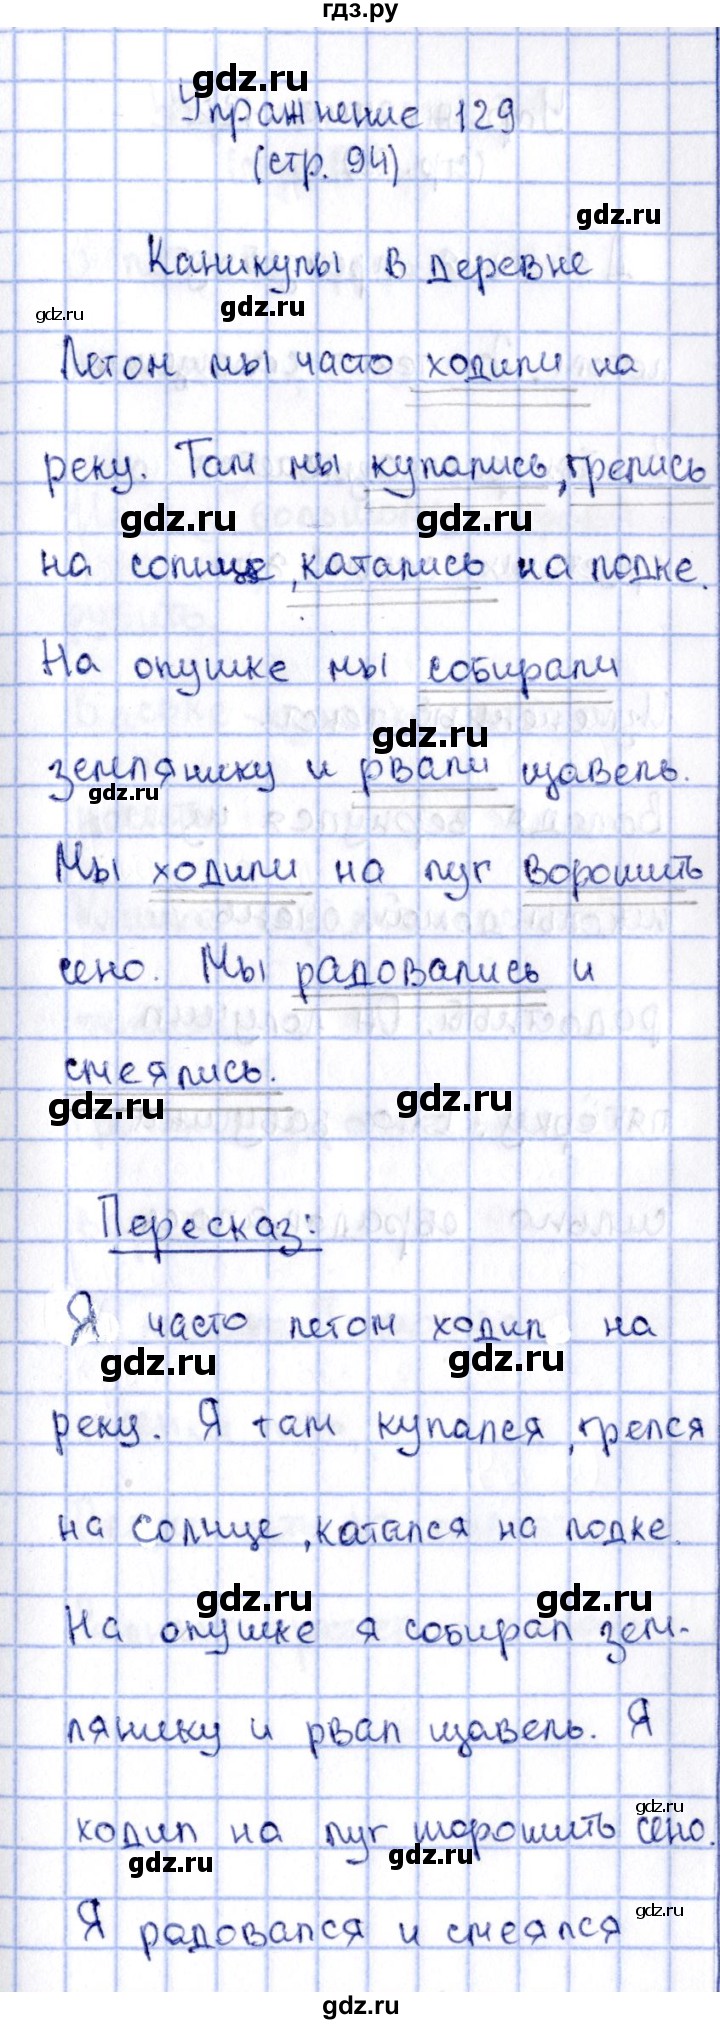 гдз.ру
gdz.ru
Упражнение 129
(стр. 94)
gdz.ru
Каникулы в деревне
gdz.ru
gdz.ru
Летом мы часто ходили на
реку. Там мы купались, грелись
gdz.ru gdz.ru
на солнце, катались на лодке.
На опушке мы собирали
gdz.ru
землянику и рвали щавель.
gdz.ru
Мы ходили на луг ворошить
сено. Мы радовались и
смеялись.
gdz.ru gdz.ru
Пересказ:
Я часто летом ходил на
gdz.ru gdz.ru
реку. Я там купался, грелся
на солнце, катался на лодке.
gdz.ru gdz.ru
На опушке я собирал зем-
лянику и рвал щавель. Я
gdz.ru
ходил на луг шорошить сено.
gdz.ru gdz.ru
Я радовался и смеялся
gdz.ru
gdz.ru